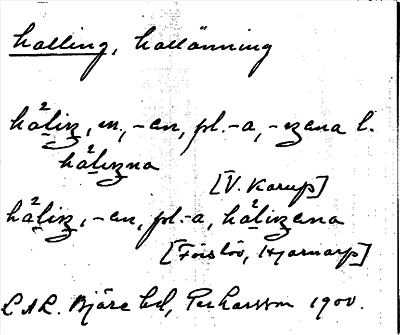 halling, hallänning
håliʒ, m, -en, pl. -a, -ʒana l.
håliʒna
[V. Karup]
håliʒ, -en, pl. -a, håliʒana
[Förslöv, Hjärnarp]
LAL. Bjäre hd, Per Larsson 1900.